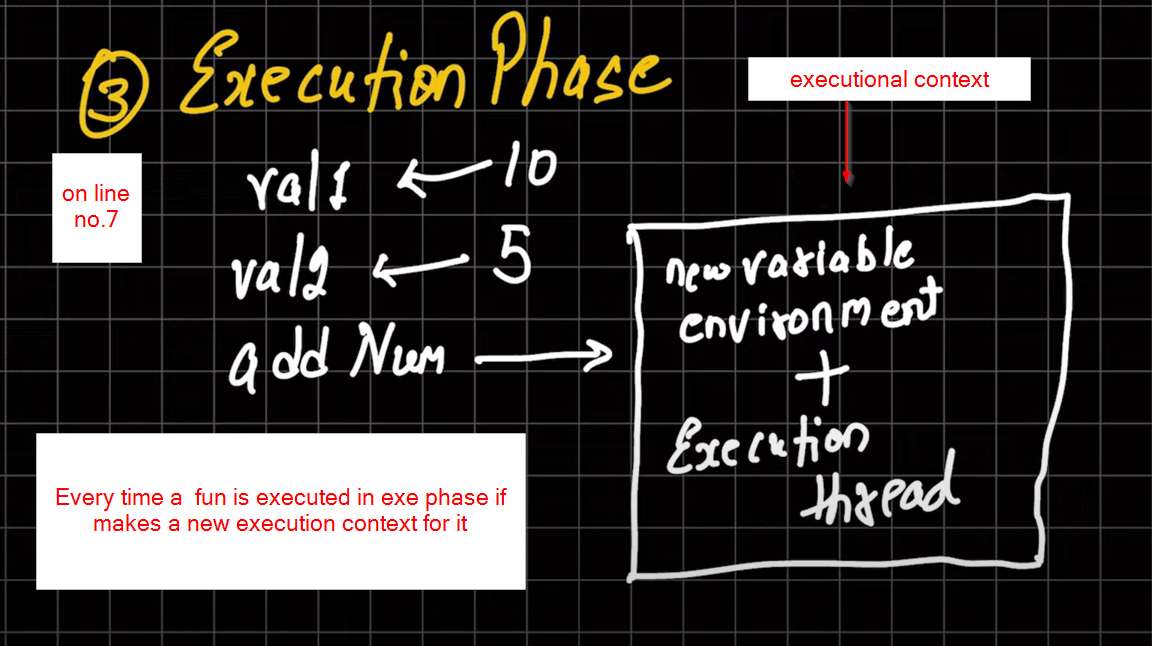 ③ Execution Phase
executional context
on line
no.7
val1 ← 10
val2 ← 5
add Num →
new variable
environment
+
Execution
thread
Every time a fun is executed in exe phase if
makes a new execution context for it